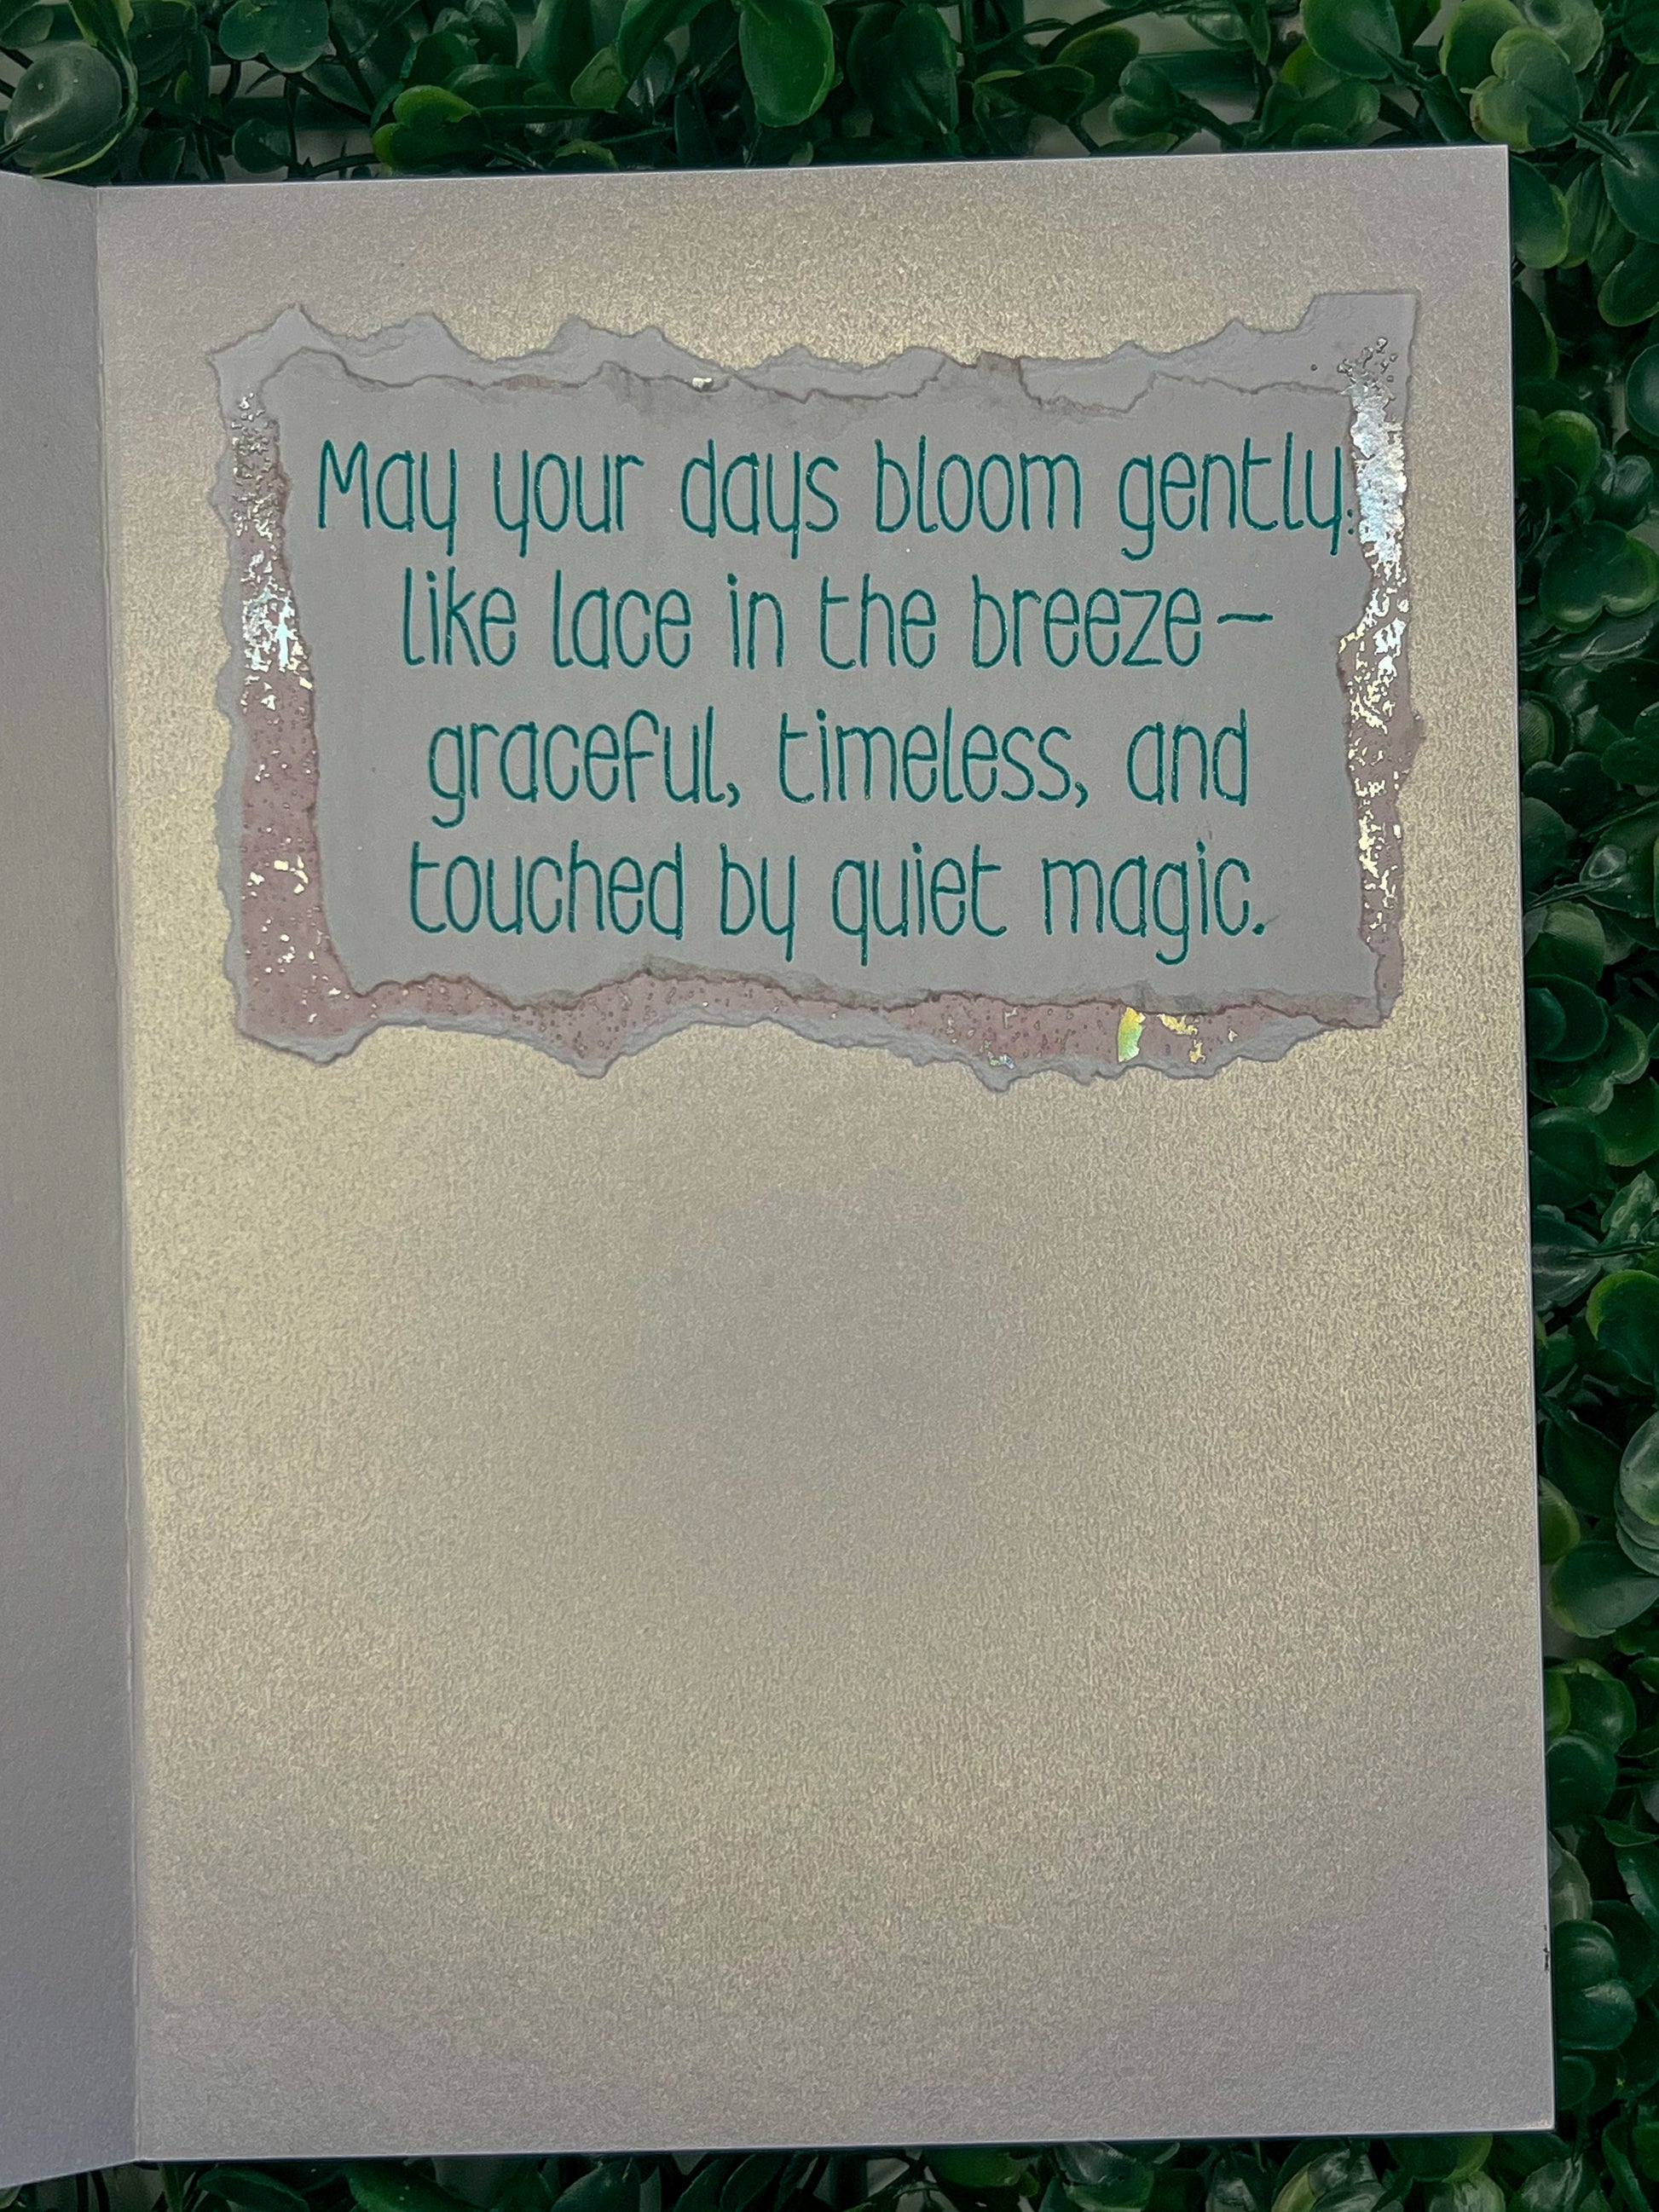 May your days bloom gently,
like lace in the breeze—
graceful, timeless, and
touched by quiet magic.